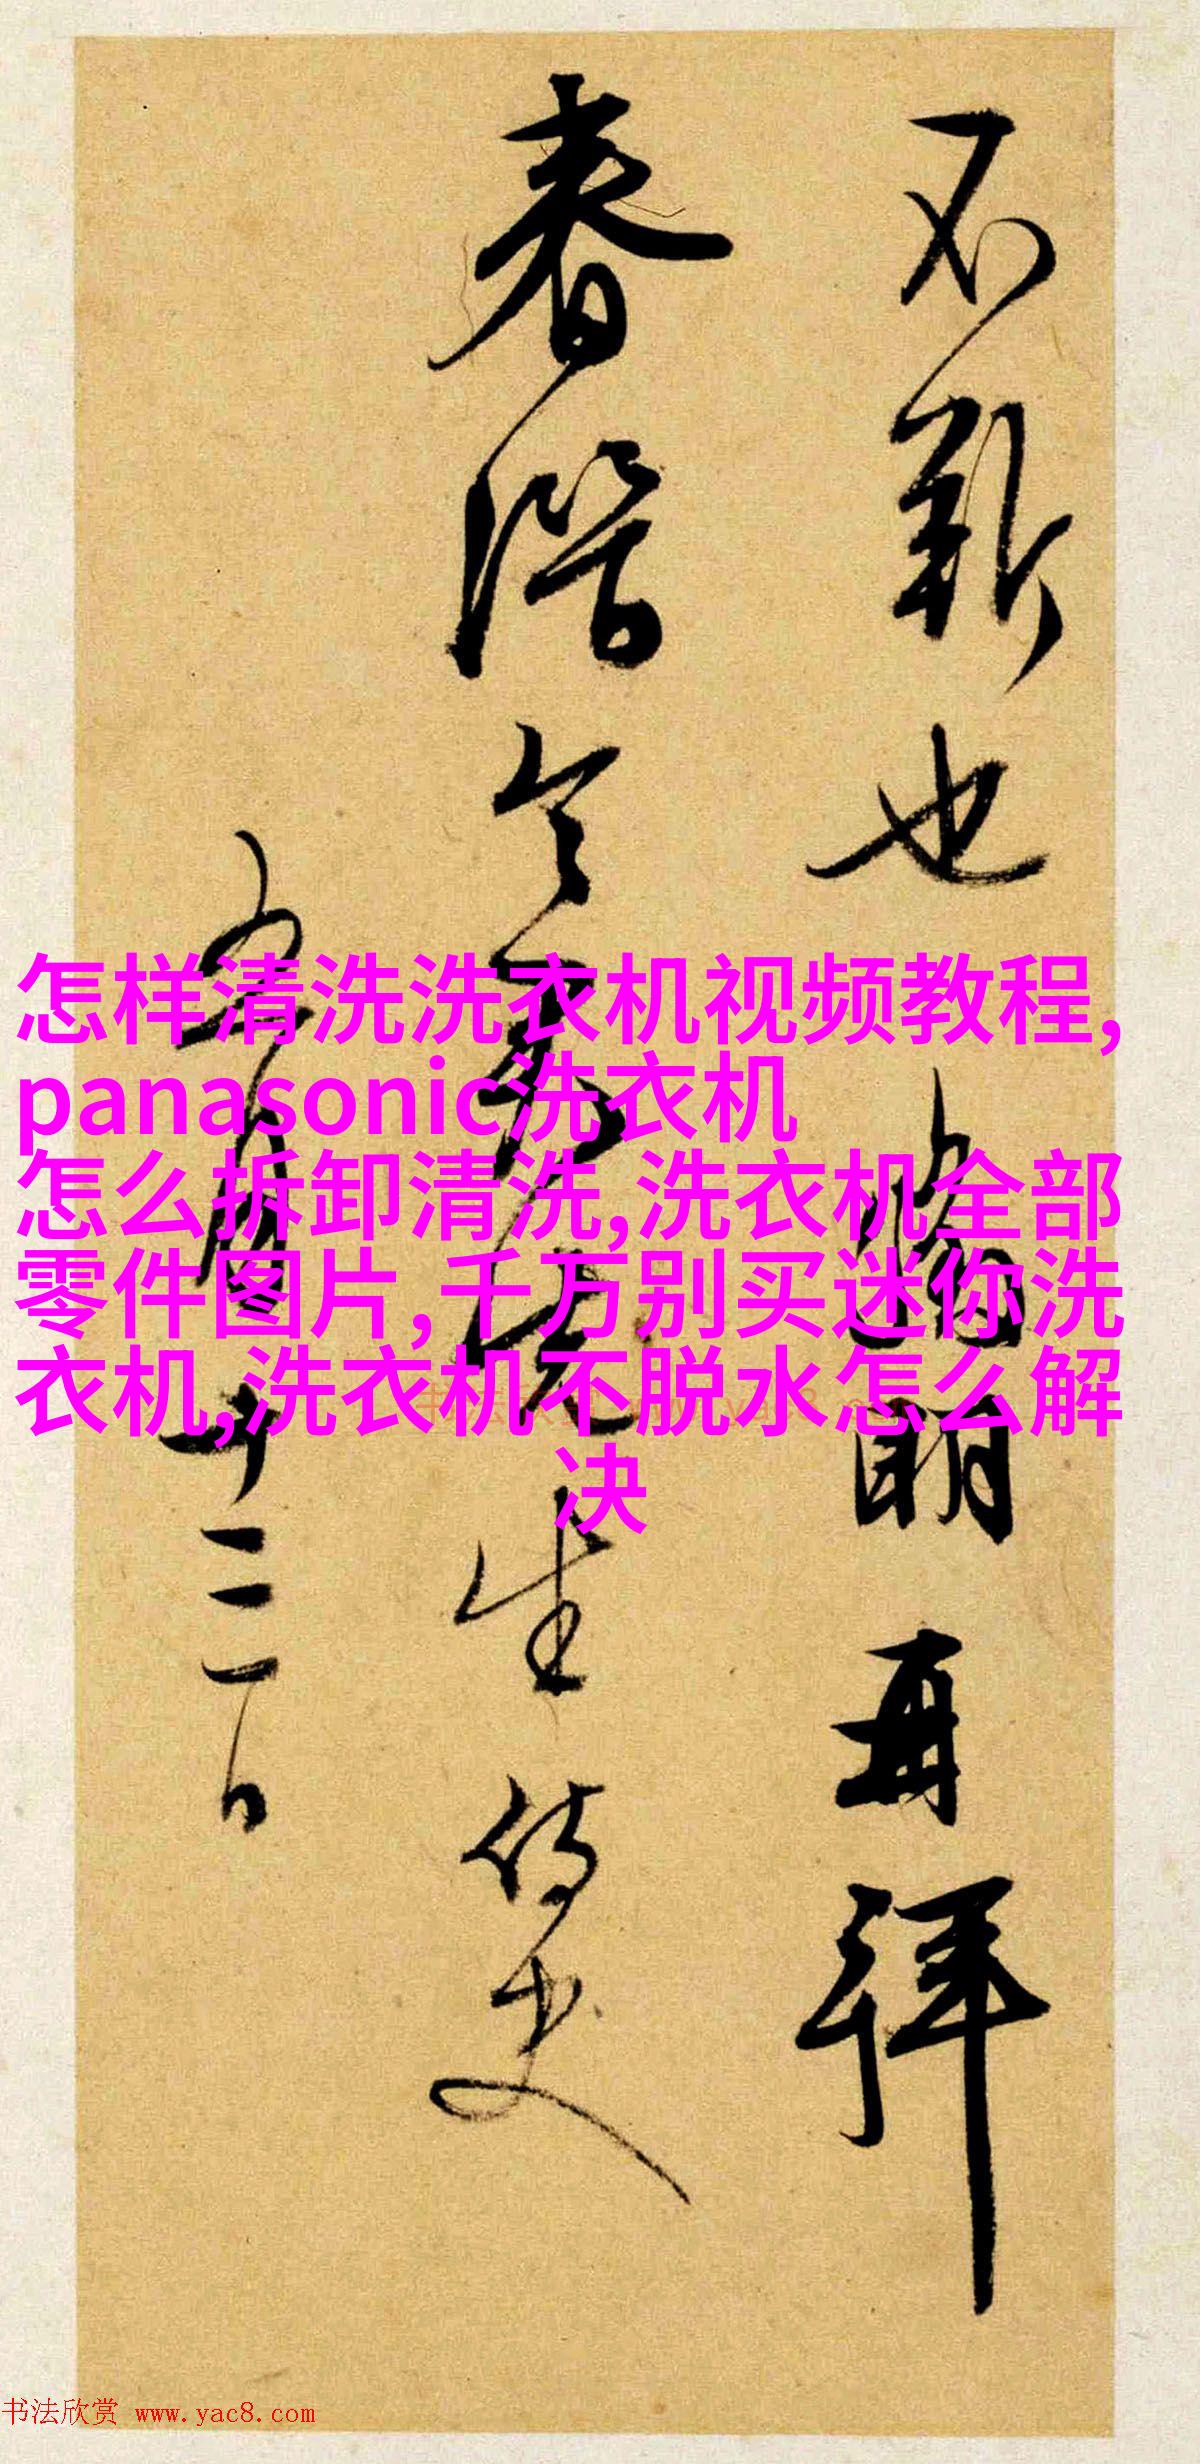 不斳也
脩明再拜
春潛令君先生侍史
五月十三日
怎样清洗洗衣机视频教程,
panasonic洗衣机
怎么拆卸清洗,洗衣机全部
零件图片,千万别买迷你洗
衣机,洗衣机不脱水怎么解
决
书法欣赏 www.yac8.com